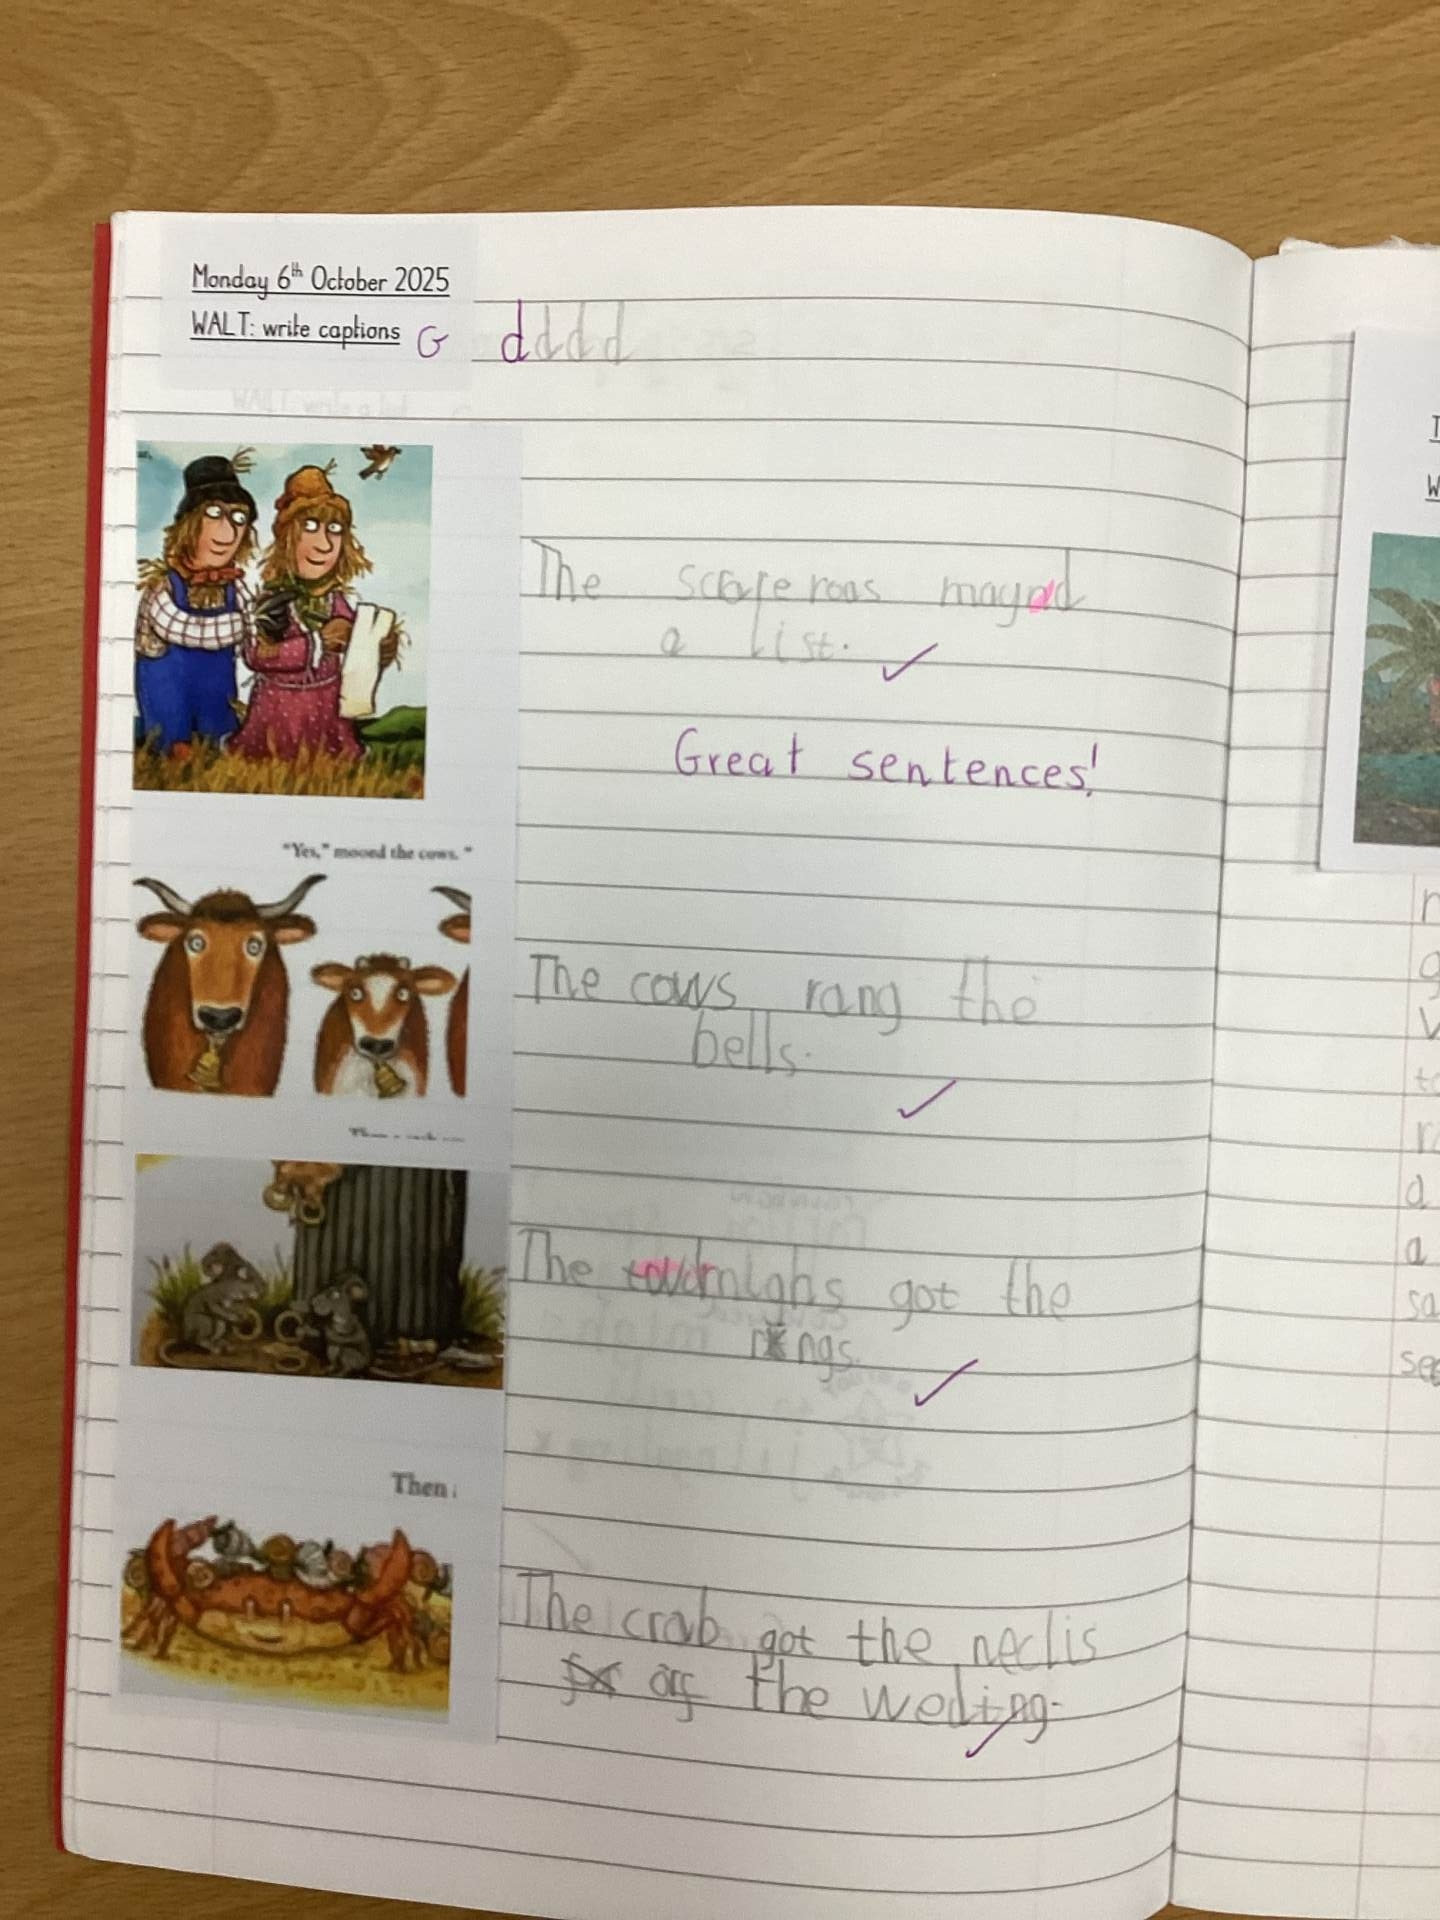 Monday 6th October 2025
WALT: write captions G dddd
The mayd
a list.
Great sentences!
"Yes," mooed the cows. "
The cows rang the
bells.
The got the
rings.
Then
The crab got the neclis
the weding.